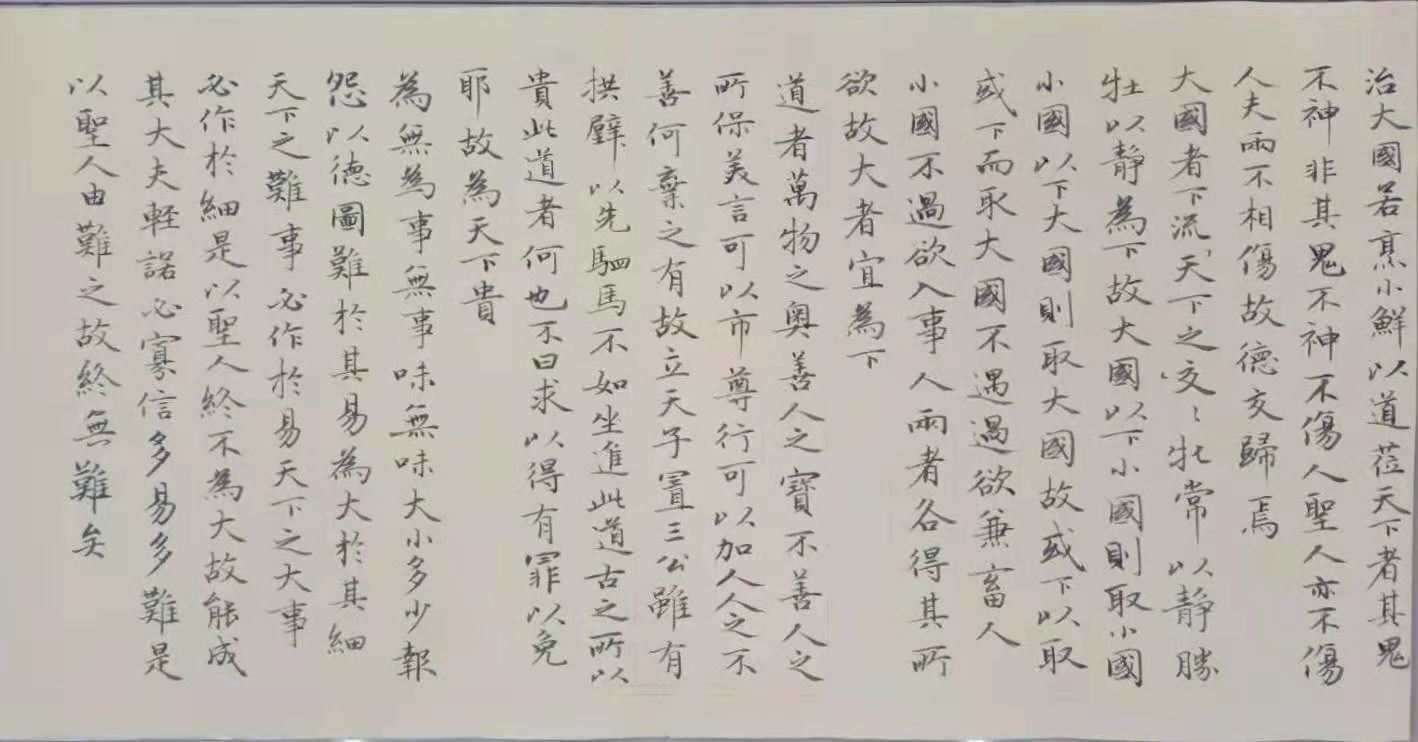 治大國若烹小鮮以道莅天下者其鬼
不神非其鬼不神不傷人聖人亦不傷
人夫兩不相傷故德交歸焉
大國者下流天下之交〻牝常以靜勝
牡以靜為下故大國以下小國則取小國
小國以下大國則取大國故或下以取
或下而取大國不過過欲兼畜人
小國不過欲入事人兩者各得其所
欲故大者宜為下
道者萬物之奧善人之寶不善人之
所保美言可以市尊行可以加人人之不
善何棄之有故立天子置三公雖有
拱璧以先駟馬不如坐進此道古之所以
貴此道者何也不曰求以得有罪以免
耶故為天下貴
為無為事無事味無味大小多少報
怨以德圖難於其易為大於其細
天下之難事必作於易天下之大事
必作於細是以聖人終不為大故能成
其大夫輕諾必寡信多易多難是
以聖人由難之故終無難矣